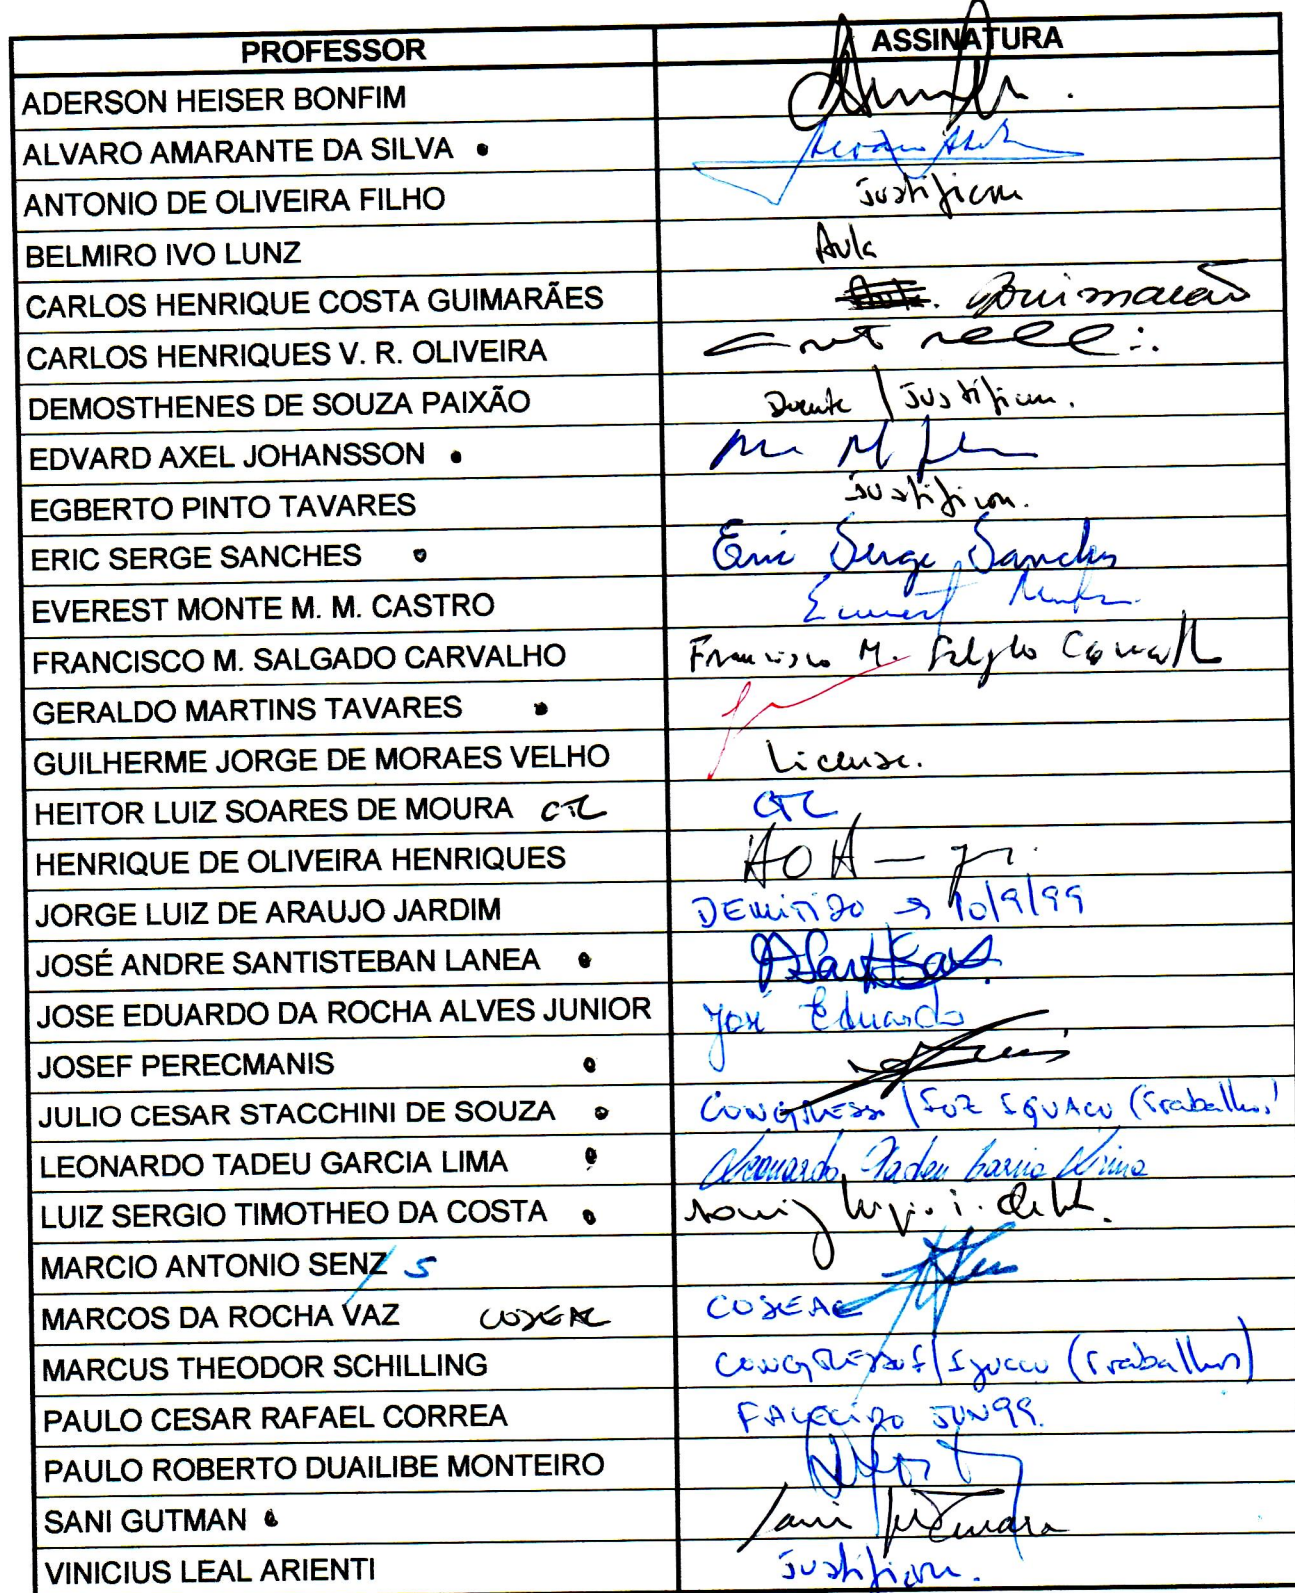 PROFESSOR ASSINATURA
ADERSON HEISER BONFIM
ALVARO AMARANTE DA SILVA •
ANTONIO DE OLIVEIRA FILHO Justificou
BELMIRO IVO LUNZ Aula
CARLOS HENRIQUE COSTA GUIMARÃES Guimarães
CARLOS HENRIQUES V. R. OLIVEIRA
DEMOSTHENES DE SOUZA PAIXÃO Doente / Justificou.
EDVARD AXEL JOHANSSON •
EGBERTO PINTO TAVARES Justificou.
ERIC SERGE SANCHES • Eric Serge Sanches
EVEREST MONTE M. M. CASTRO
FRANCISCO M. SALGADO CARVALHO Francisco M. Salgado Carvalho
GERALDO MARTINS TAVARES •
GUILHERME JORGE DE MORAES VELHO Licensa.
HEITOR LUIZ SOARES DE MOURA CTC CTC
HENRIQUE DE OLIVEIRA HENRIQUES HOH
JORGE LUIZ DE ARAUJO JARDIM DEMITIDO → 10/9/99
JOSÉ ANDRE SANTISTEBAN LANEA •
JOSE EDUARDO DA ROCHA ALVES JUNIOR José Eduardo
JOSEF PERECMANIS •
JULIO CESAR STACCHINI DE SOUZA • CONGRESSO / FOZ IGUAÇU (Trabalhos)
LEONARDO TADEU GARCIA LIMA • Leonardo Tadeu Garcia Lima
LUIZ SERGIO TIMOTHEO DA COSTA •
MARCIO ANTONIO SENZ S
MARCOS DA ROCHA VAZ COSEAC COSEAC
MARCUS THEODOR SCHILLING CONGRESSO F/Iguacu (Trabalhos)
PAULO CESAR RAFAEL CORREA FALECIDO JUN99.
PAULO ROBERTO DUAILIBE MONTEIRO
SANI GUTMAN • Sani
VINICIUS LEAL ARIENTI Justificou.